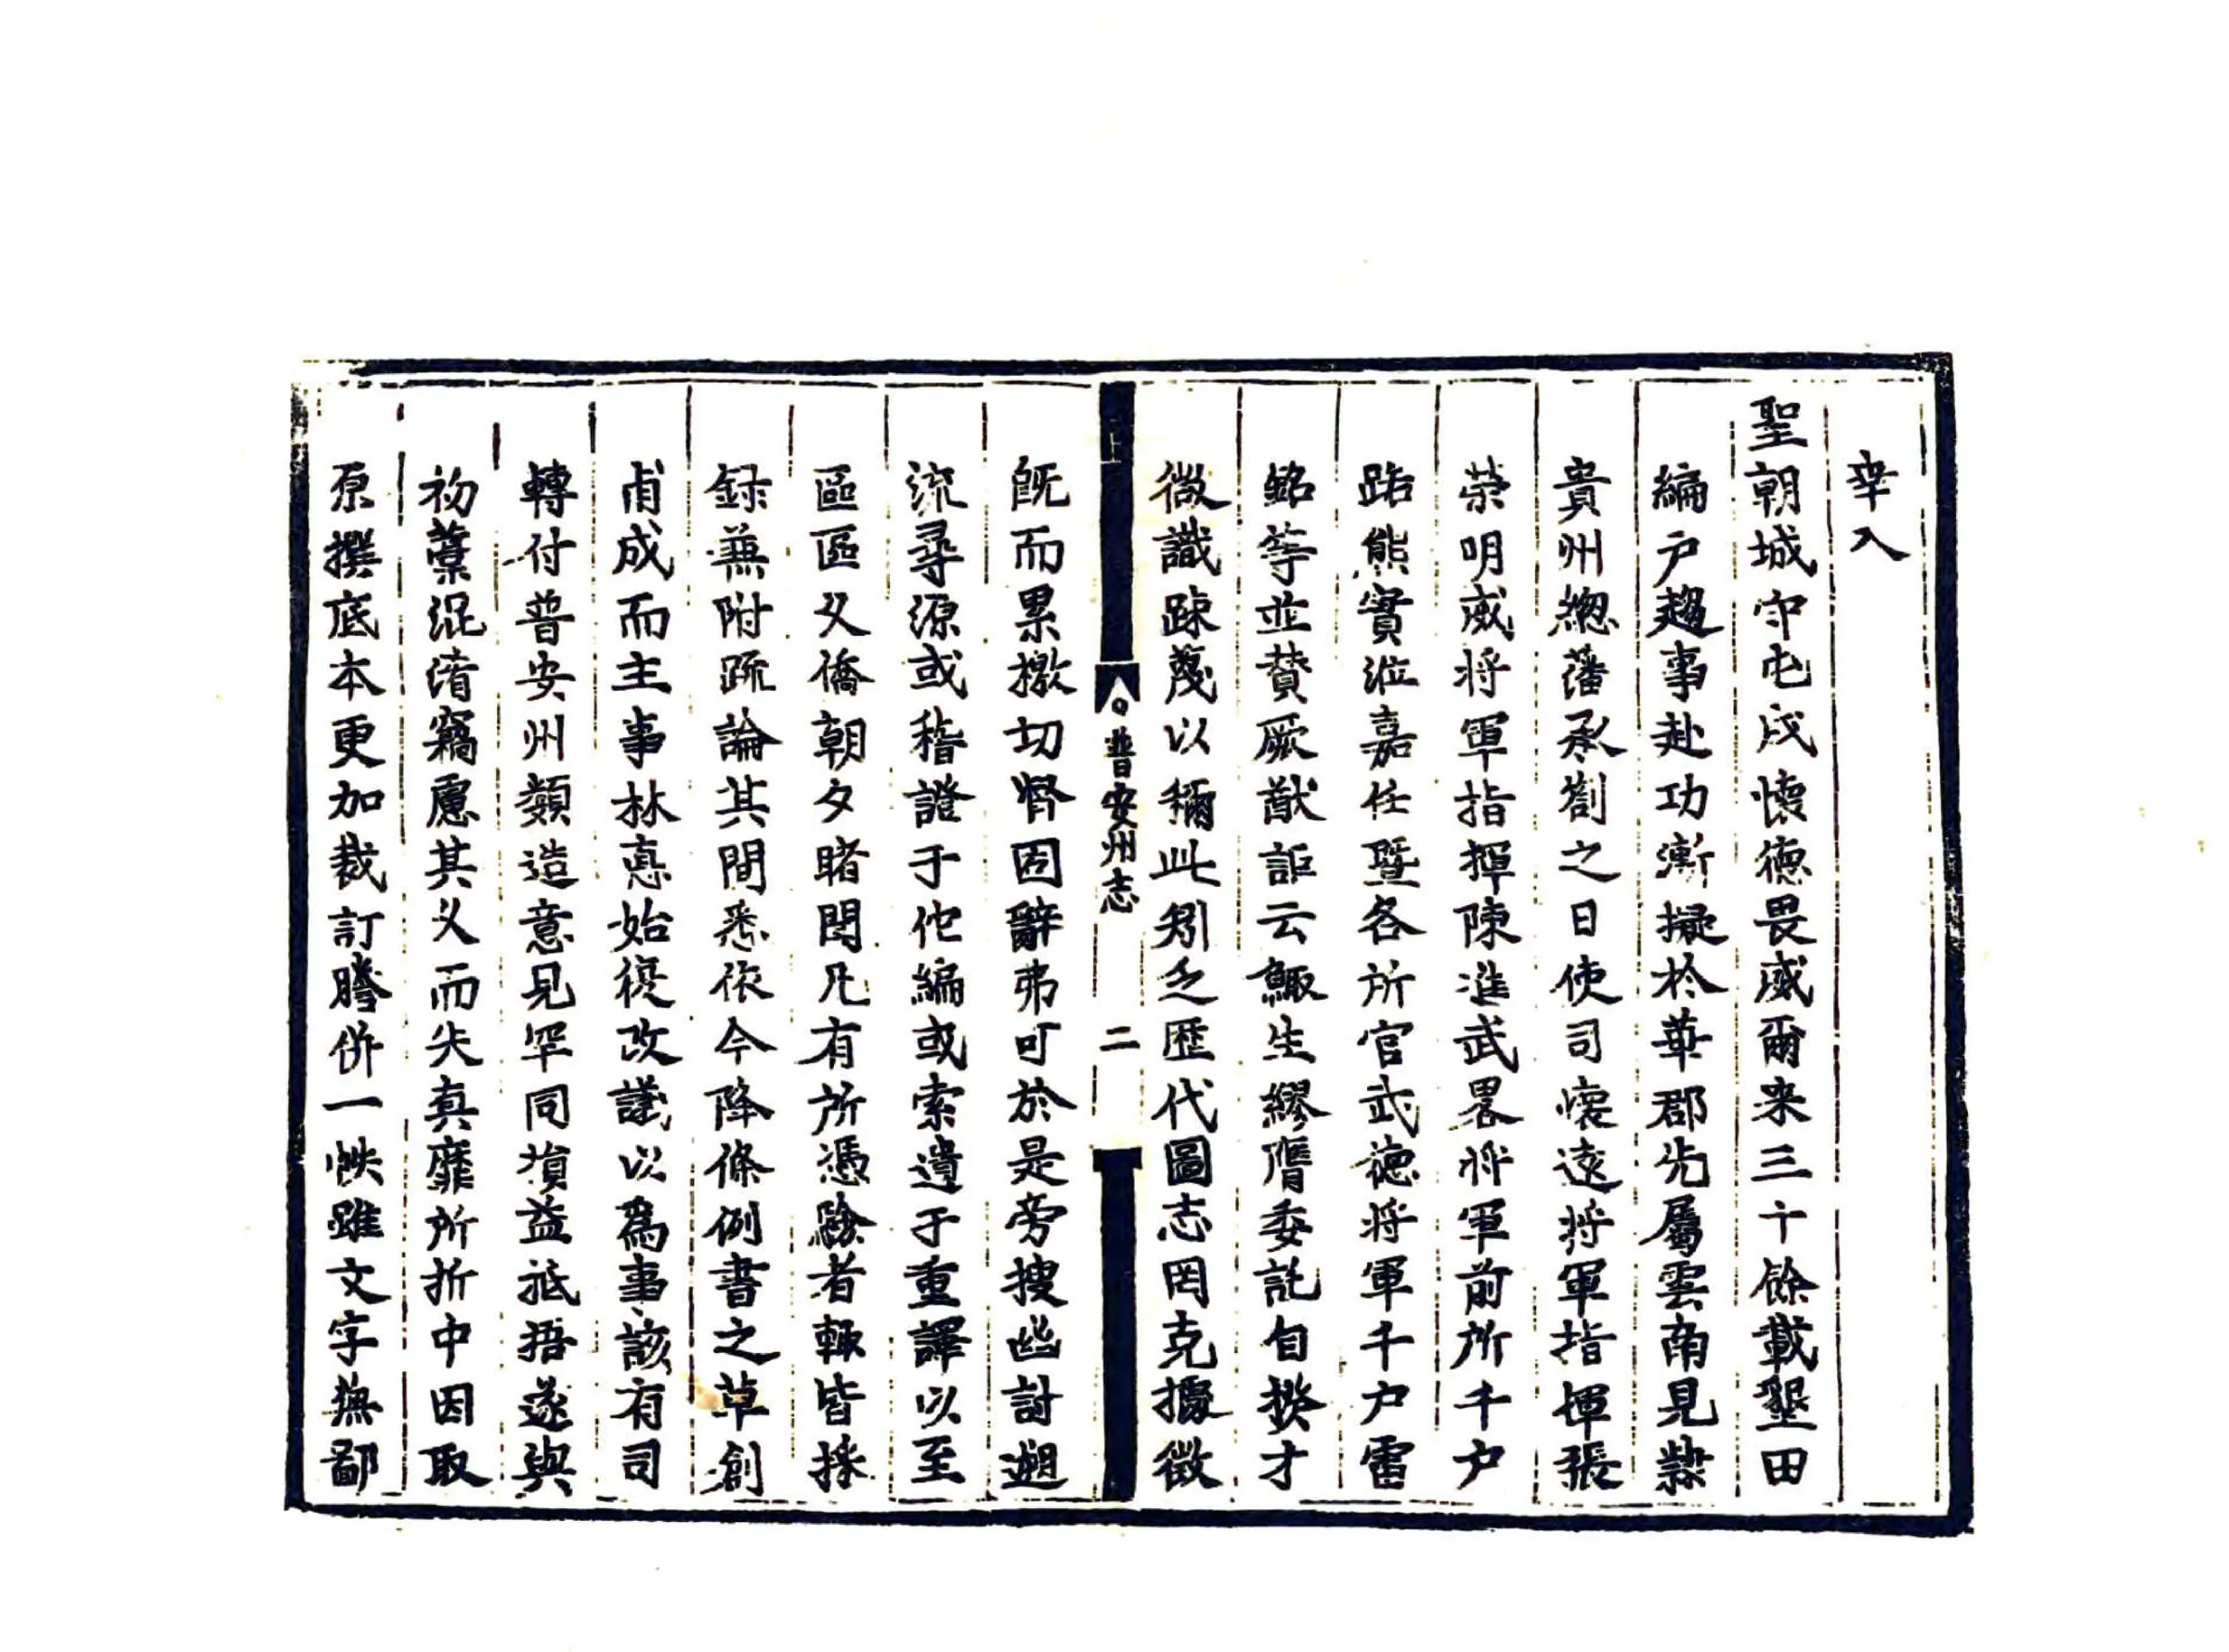 幸入
聖朝城守屯戍懷德畏威爾来三十餘載墾田
編户趨事赴功漸擬於華郡先屬雲南見隸
貴州總藩承劄之日使司懷遠將軍指揮張
榮明威将軍指揮陳進武畧将軍前所千户
路熊實涖嘉任暨各所官武德将軍千户雷
銘等並贊厥猷詎云鯫生繆膺委託自揆才
微識踈蔑以稱此矧乏歷代圖志罔克據徵
普安州志 二
既而累檄切督固辭弗可於是旁搜幽討遡
流尋源或稽證于他編或索遺于重譯以至
區區父僑朝夕睹聞凡有所憑驗者輒皆採
録兼附疏論其間悉依今降條例書之草創
甫成而主事林惪始從改議以為事該有司
轉付普安州類造意見罕同損益抵捂遂與
初藳混淆竊慮其乂而失真靡所折中因取
原撰底本更加裁訂謄併一帙雖文字蕪鄙